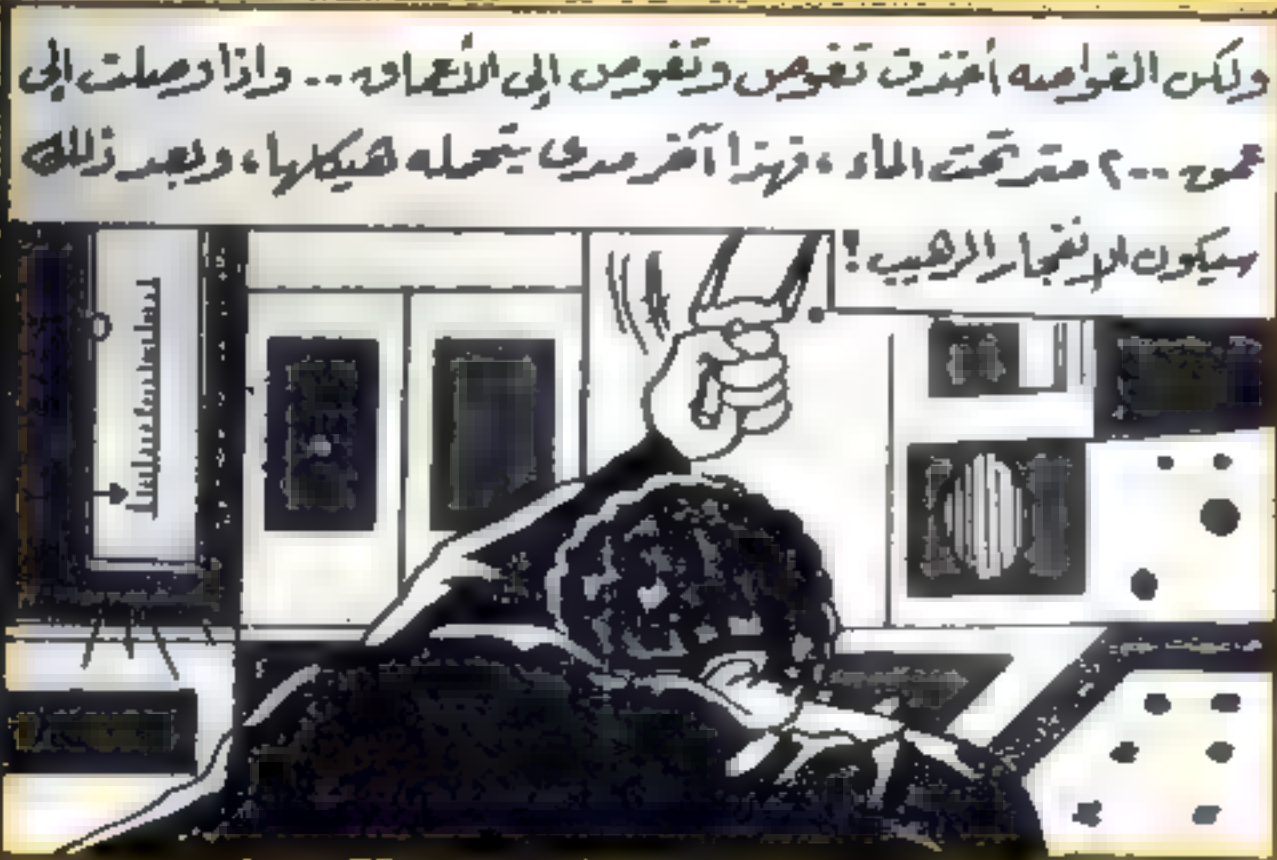 ولكن الغواصه أخذت تغوص وتغوص إلى الأعماق .. واذا وصلت إلى
عموه ٢٠٠ متر تحت الماء ، فهذا آخر مدى يتحمله هيكلها ، وبعد ذلك
سيكون الإنفجار الرهيب !